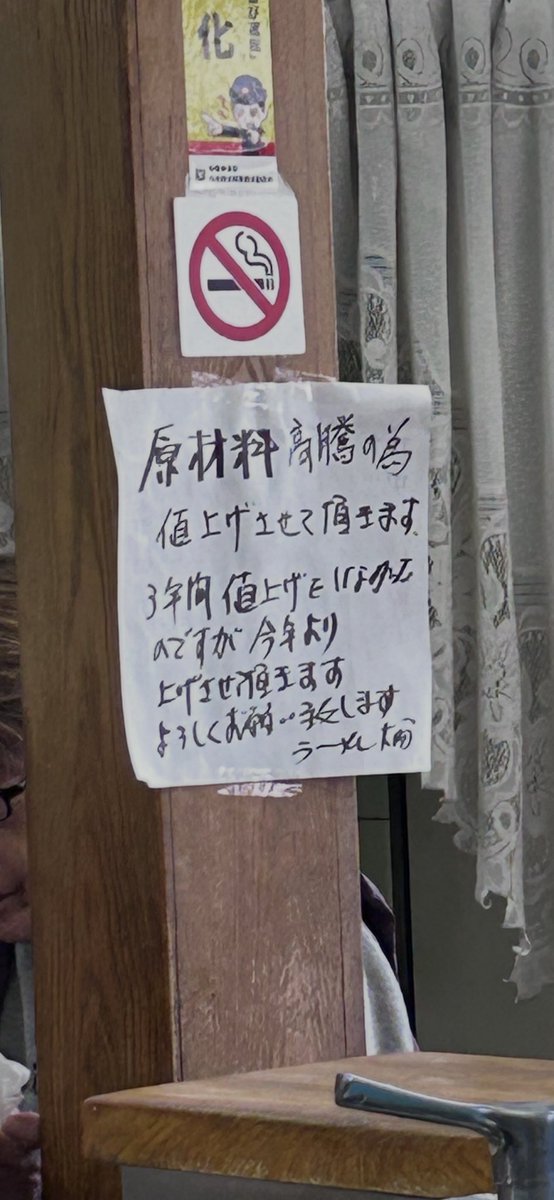 化
原材料高騰の為
値上げさせて頂きます
3年間値上げをいなかった
のですが今年より
上げさせ頂きます
よろしくお願い致します
ラーメン